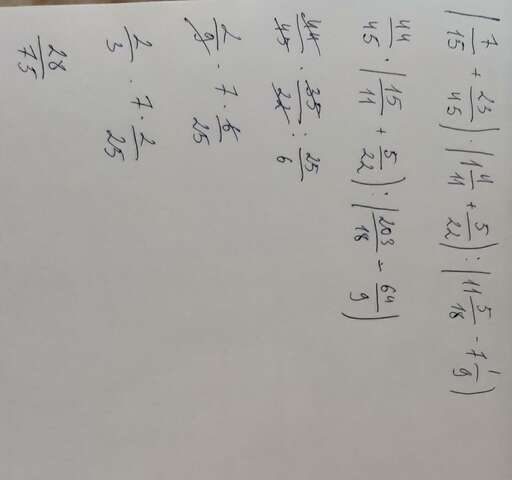 (7/15 + 23/45) · (1 4/11 + 5/22) : (11 5/18 - 7 1/9)
44/45 · (15/11 + 5/22) : (203/18 - 64/9)
44/45 · 35/22 : 25/6
2/9 · 7 · 6/25
2/3 · 7 · 2/25
28/75